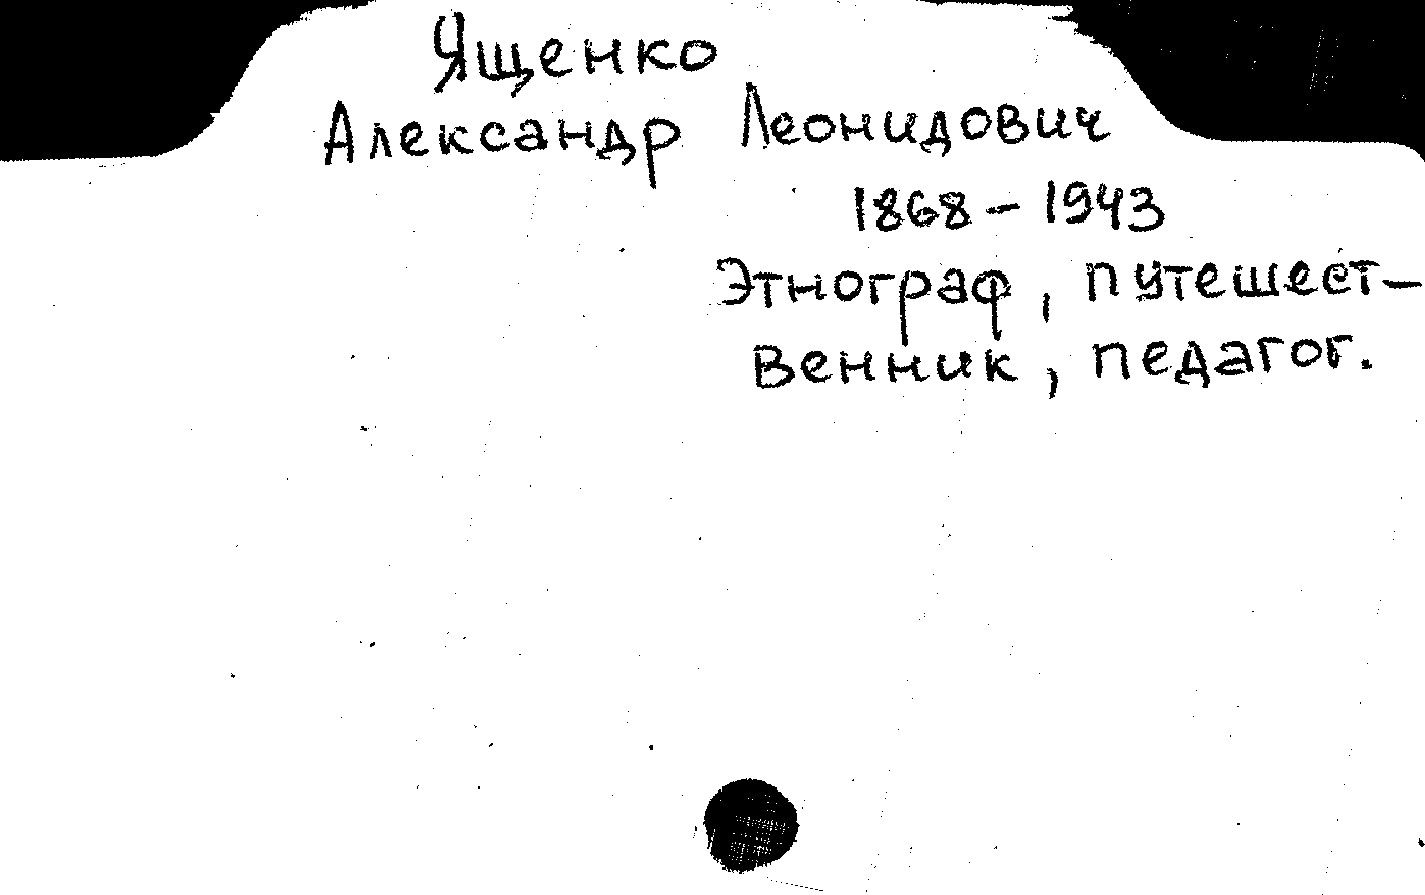 Ященко
Александр Леонидович
1868 – 1943
Этнограф, путешест-
венник, педагог.